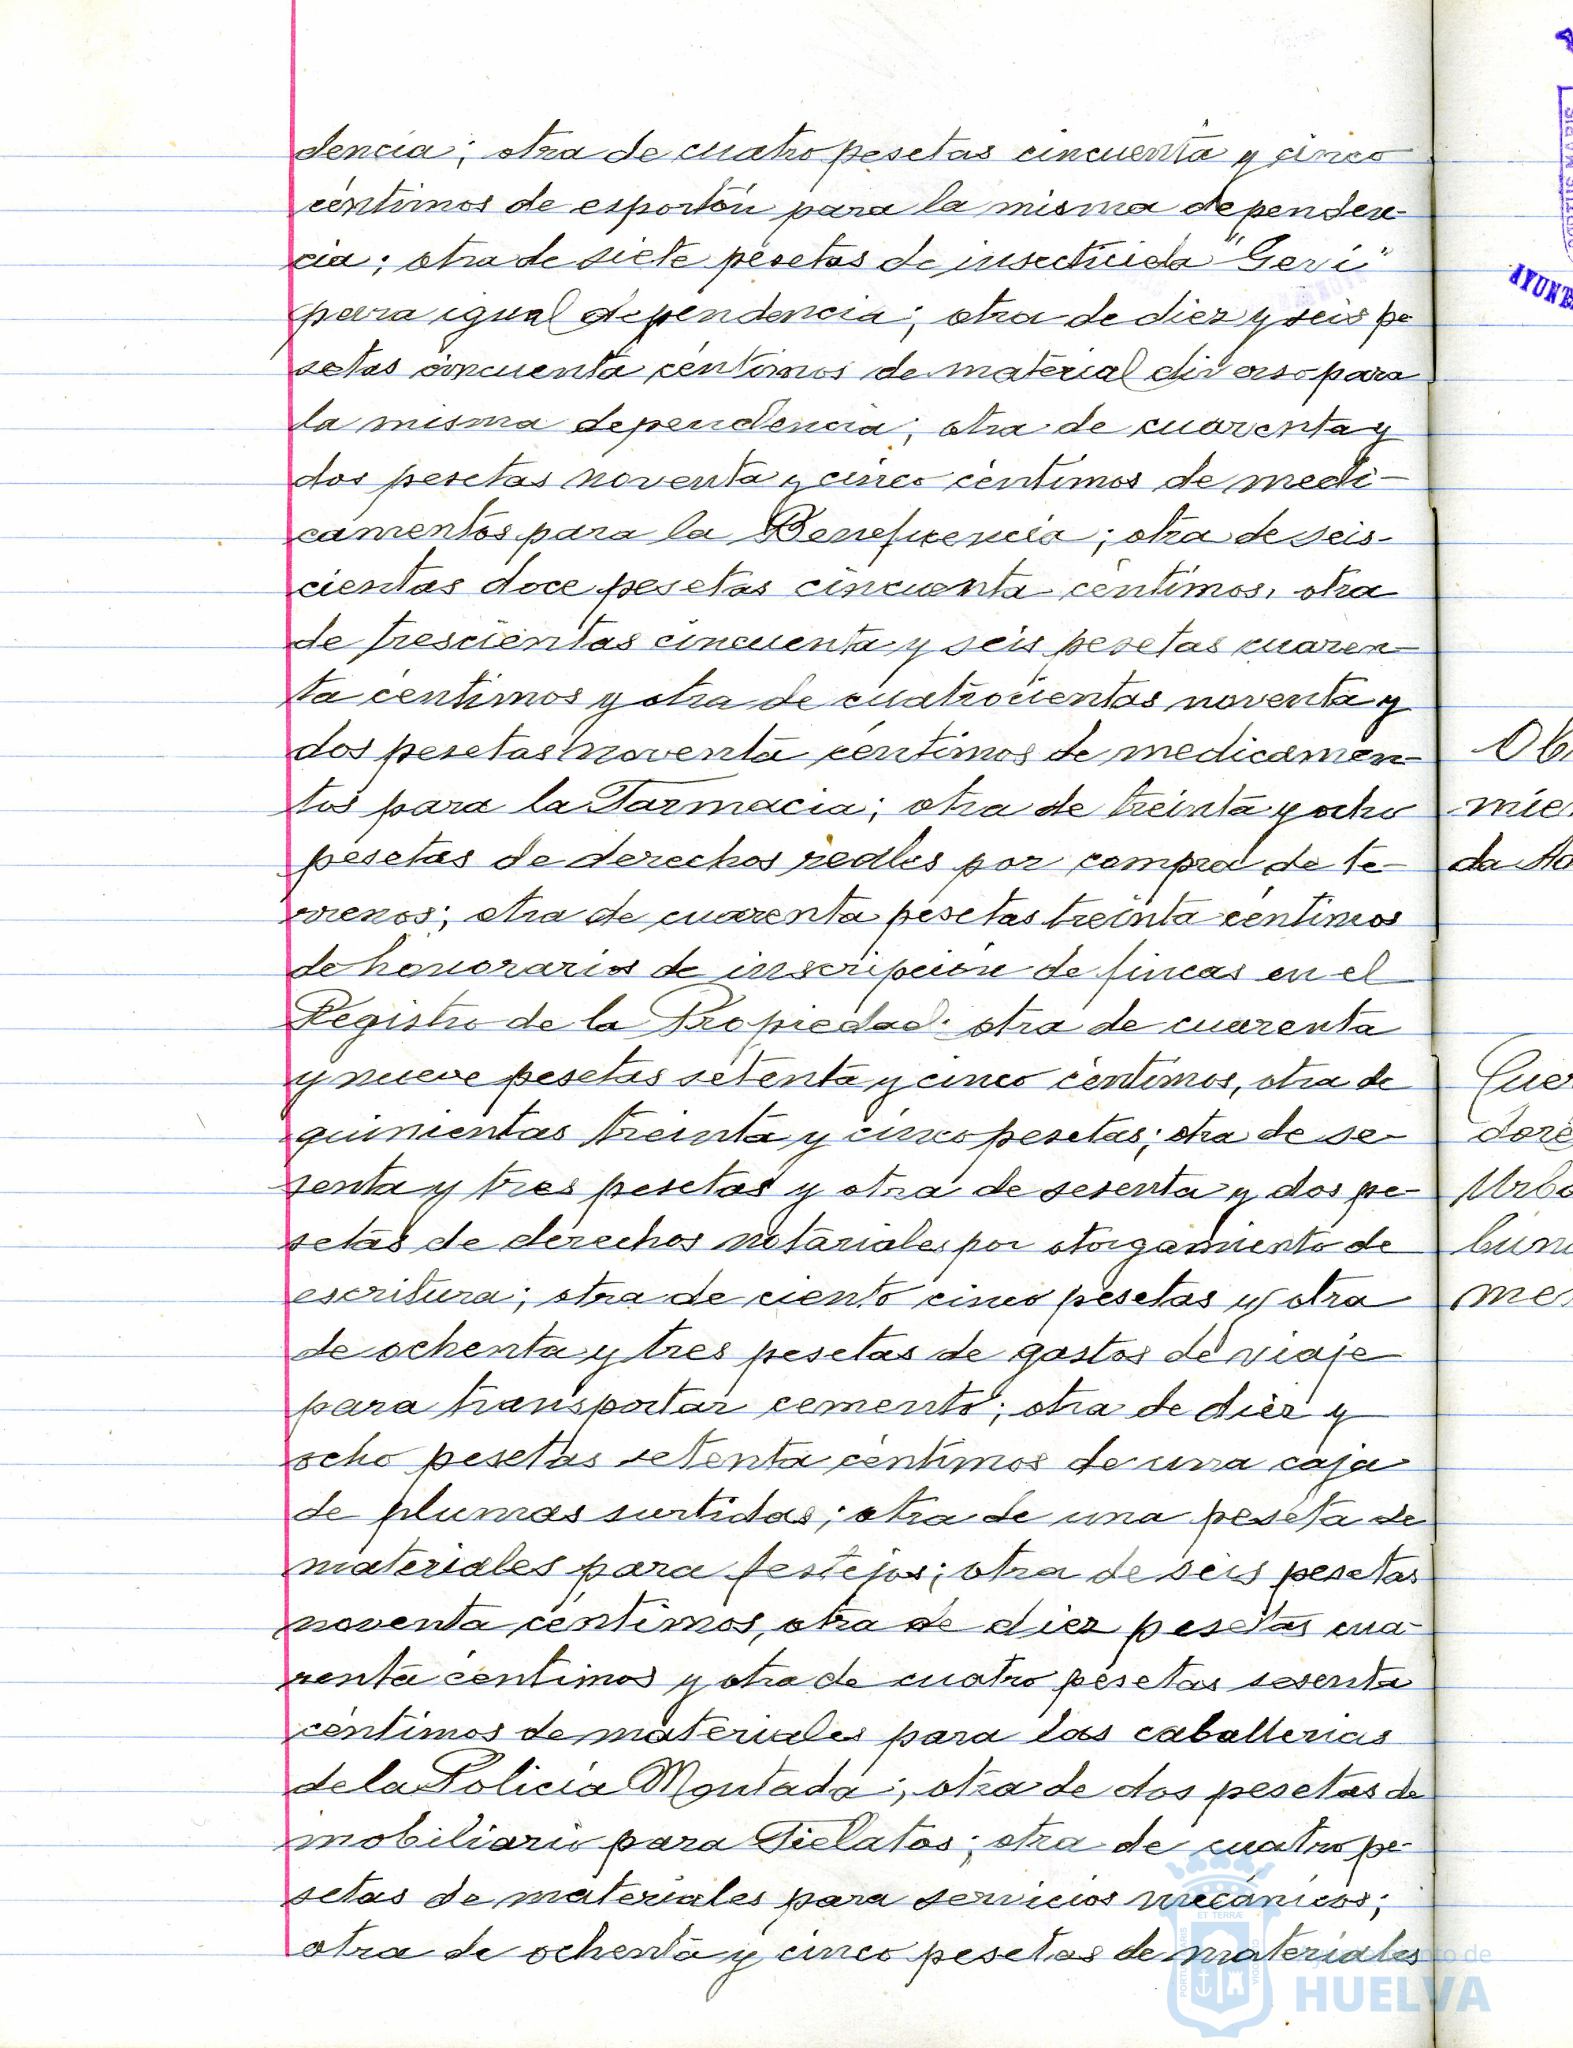 dencia; otra de cuatro pesetas cincuenta y cinco
céntimos de esportón para la misma dependen-
cia; otra de siete pesetas de insecticida "Geri"
para igual dependencia; otra de diez y seis pe
setas cincuenta céntimos de material diverso para
la misma dependencia; otra de cuarenta y
dos pesetas noventa y cinco céntimos de medi-
camentos para la Beneficencia; otra de seis-
cientas doce pesetas cincuenta céntimos, otra
de trescientas cincuenta y seis pesetas cuaren-
ta céntimos y otra de cuatrocientas noventa y
dos pesetas noventa céntimos de medicamen-
tos para la Farmacia; otra de treinta y ocho
pesetas de derechos reales por compra de te-
rrenos; otra de cuarenta pesetas treinta céntimos
de honorarios de inscripción de fincas en el
Registro de la Propiedad; otra de cuarenta
y nueve pesetas setenta y cinco céntimos, otra de
quinientas treinta y cinco pesetas; otra de se-
senta y tres pesetas y otra de sesenta y dos pe-
setas de derechos notariales por otorgamiento de
escritura; otra de ciento cinco pesetas y otra
de ochenta y tres pesetas de gastos de viaje
para transportar cemento; otra de diez y
ocho pesetas setenta céntimos de una caja
de plumas surtidas; otra de una peseta de
materiales para festejos; otra de seis pesetas
noventa céntimos, otra de diez pesetas cua-
renta céntimos y otra de cuatro pesetas sesenta
céntimos de materiales para las caballerias
de la Policía Montada; otra de dos pesetas de
mobiliario para Fielatos; otra de cuatro pe-
setas de materiales para servicios mecánicos;
otra de ochenta y cinco pesetas de materiales
mie
da
Cuer
dore
Urba
me
AYUN
HUELVA